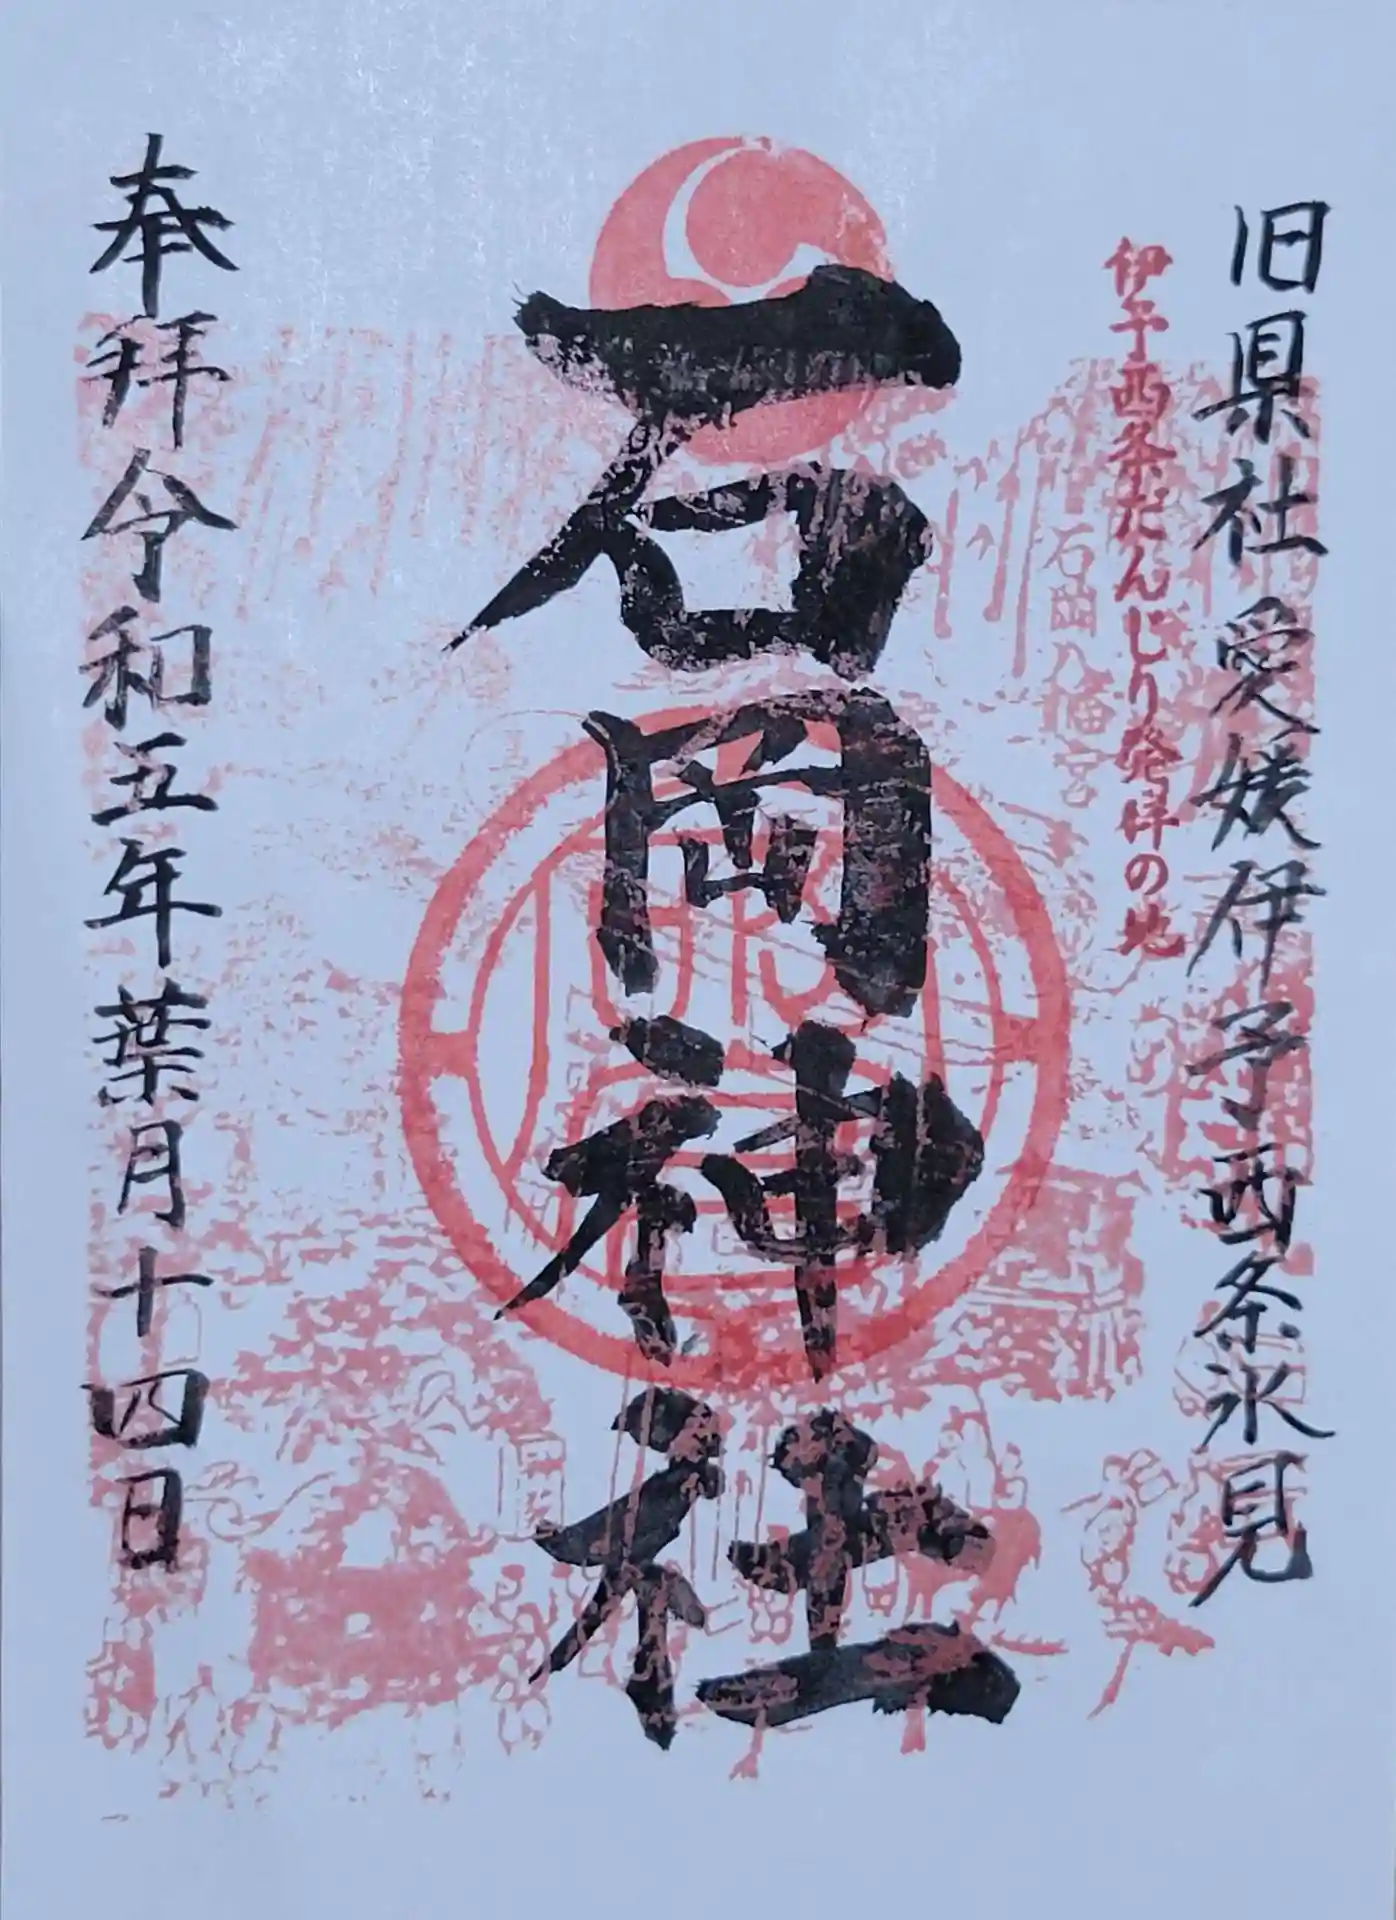 旧県社愛媛伊予西条氷見
伊予西条だんじり発祥の地
石岡八幡宮
石岡神社
奉拝令和五年葉月十四日